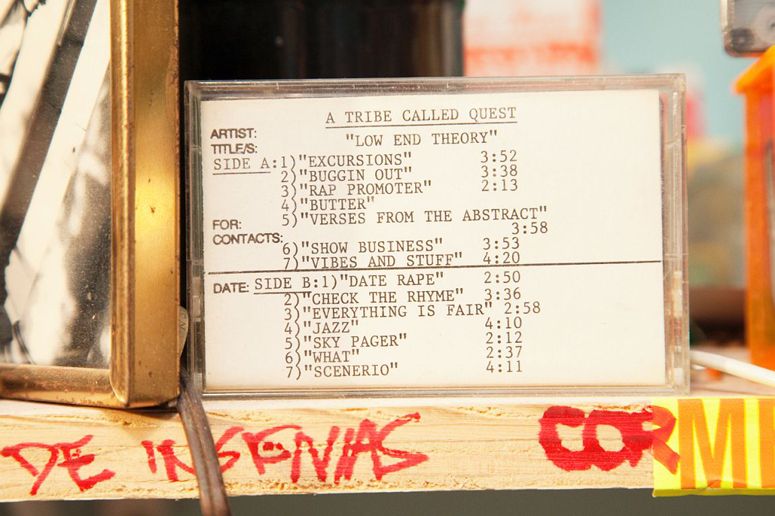 A TRIBE CALLED QUEST
ARTIST:
"LOW END THEORY"
TITLE/S:
SIDE A:1)"EXCURSIONS" 3:52
2)"BUGGIN OUT" 3:38
3)"RAP PROMOTER" 2:13
4)"BUTTER"
5)"VERSES FROM THE ABSTRACT"
FOR:
3:58
CONTACTS:
6)"SHOW BUSINESS" 3:53
7)"VIBES AND STUFF" 4:20
DATE: SIDE B:1)"DATE RAPE" 2:50
2)"CHECK THE RHYME" 3:36
3)"EVERYTHING IS FAIR" 2:58
4)"JAZZ" 4:10
5)"SKY PAGER" 2:12
6)"WHAT" 2:37
7)"SCENERIO" 4:11
DE INSENIAS COR